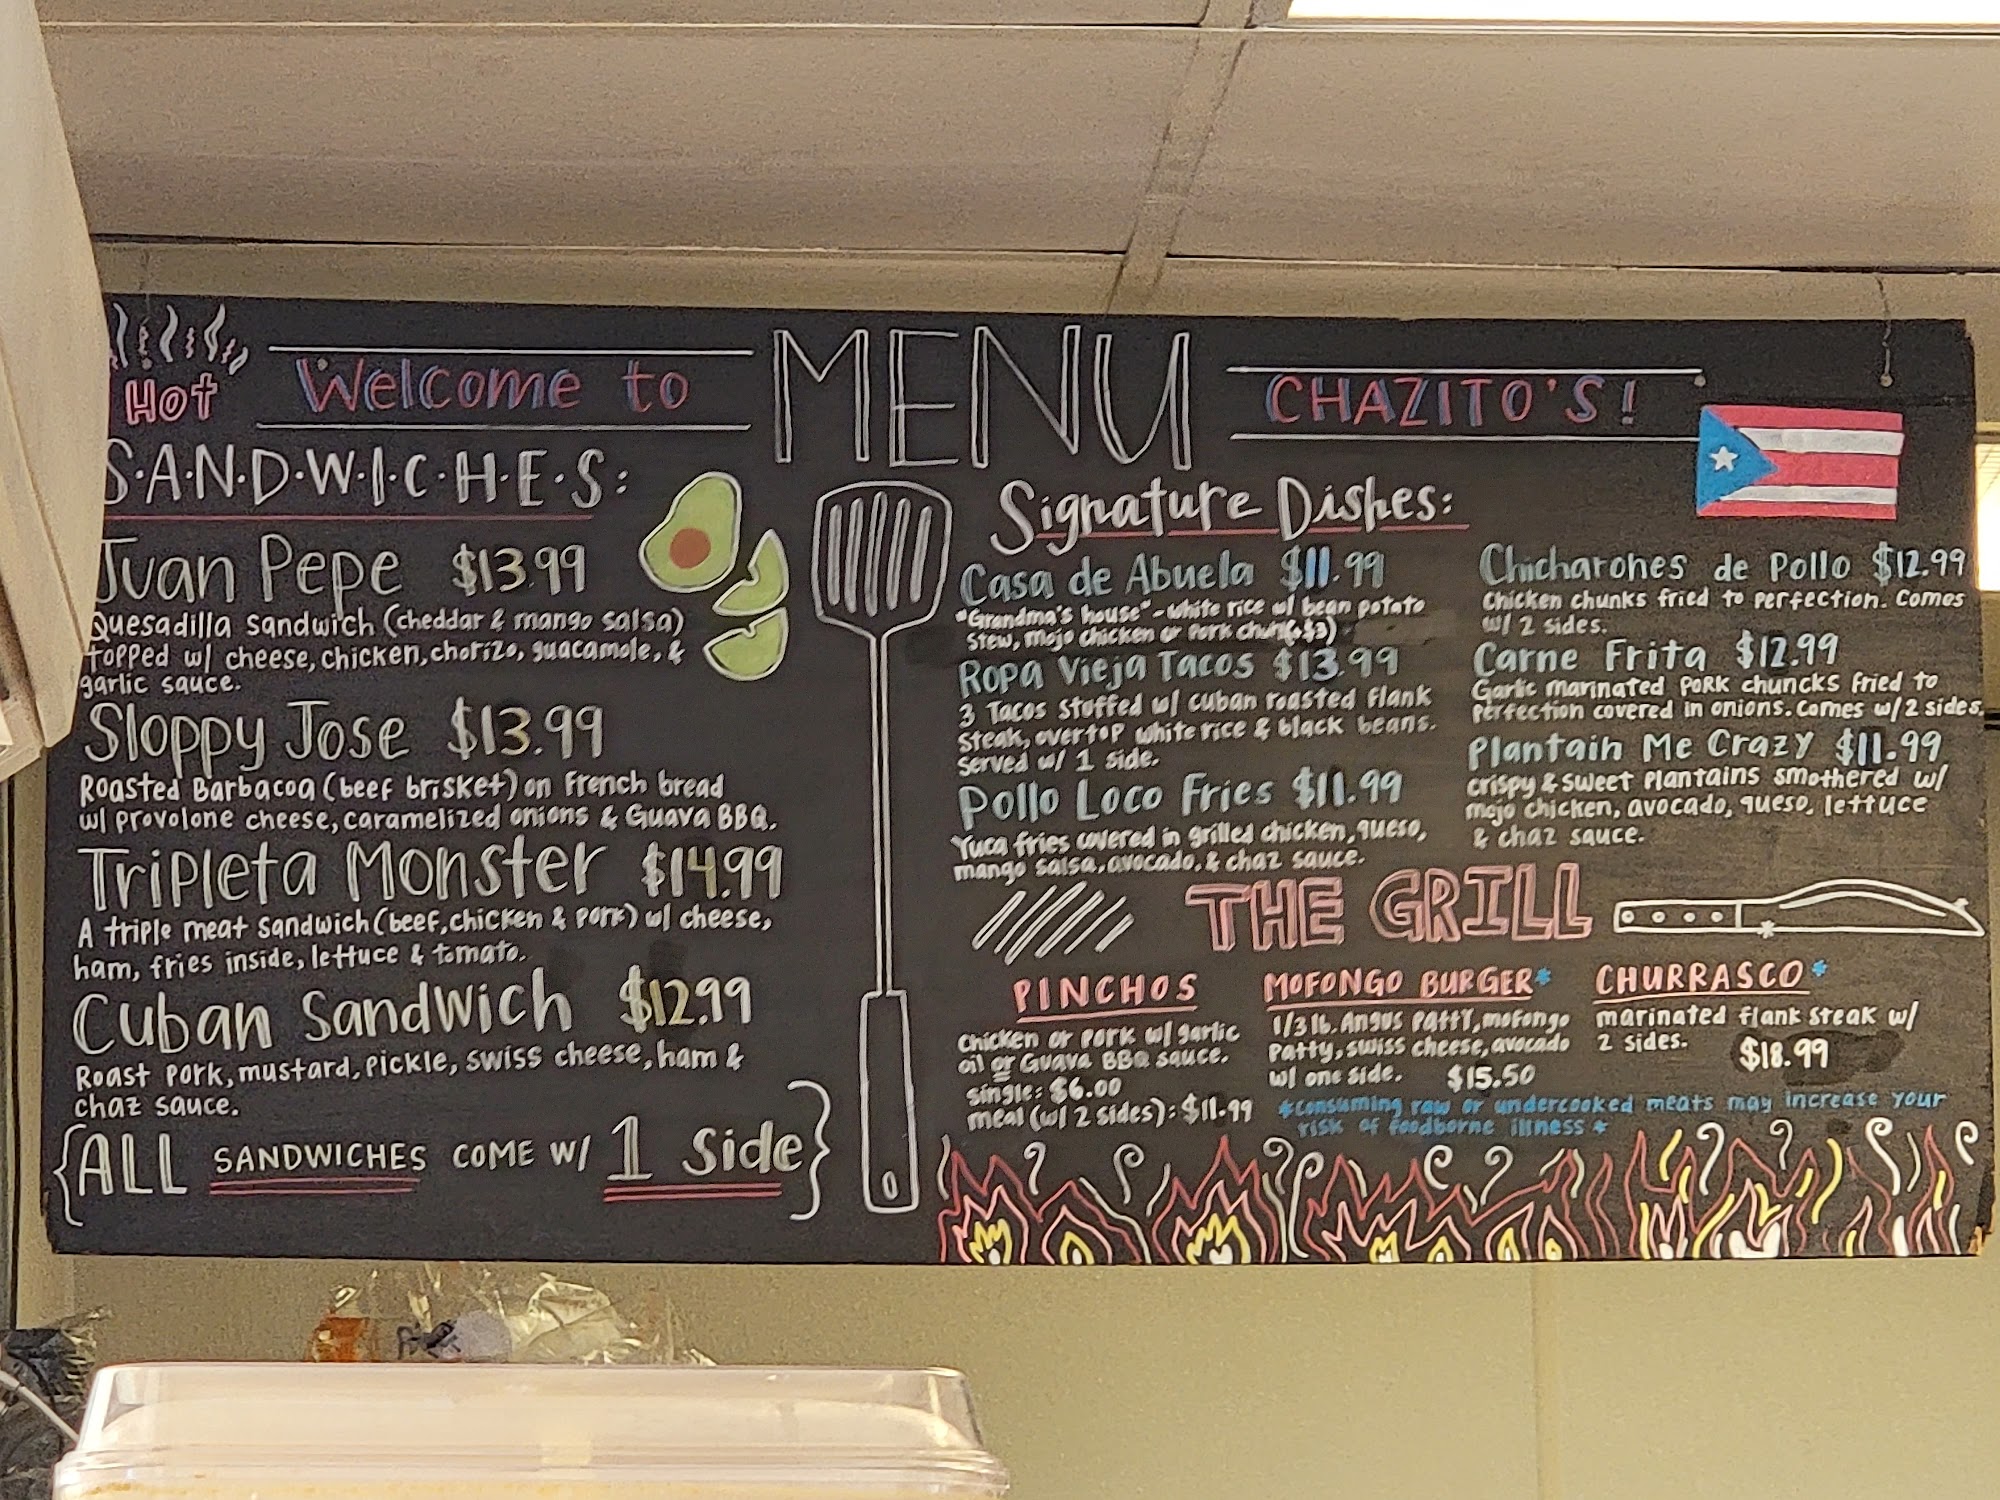 Hot
Welcome to
MENU
CHAZITO'S!
S·A·N·D·W·I·C·H·E·S:
Juan Pepe $13.99
Quesadilla sandwich (cheddar & mango salsa)
topped w/ cheese, chicken, chorizo, guacamole, &
garlic sauce.
Sloppy Jose $13.99
Roasted Barbacoa (beef brisket) on French bread
w/ provolone cheese, caramelized onions & Guava BBQ.
Tripleta Monster $14.99
A triple meat sandwich (beef, chicken & pork) w/ cheese,
ham, fries inside, lettuce & tomato.
Cuban Sandwich $12.99
Roast pork, mustard, pickle, swiss cheese, ham &
chaz sauce.
{ALL SANDWICHES COME W/ 1 side}
Signature Dishes:
Casa de Abuela $11.99
"Grandma's house" - white rice w/ bean potato
stew, mojo chicken or pork chun(+$3)
Ropa Vieja Tacos $13.99
3 Tacos stuffed w/ cuban roasted flank
steak, overtop white rice & black beans.
served w/ 1 side.
Pollo Loco Fries $11.99
Yuca fries covered in grilled chicken, queso,
mango salsa, avocado, & chaz sauce.
Chicharones de Pollo $12.99
Chicken chunks fried to perfection. Comes
w/ 2 sides.
Carne Frita $12.99
Garlic marinated pork chuncks fried to
perfection covered in onions. Comes w/ 2 sides.
Plantain Me Crazy $11.99
crispy & sweet plantains smothered w/
mojo chicken, avocado, queso, lettuce
& chaz sauce.
THE GRILL
PINCHOS
Chicken or pork w/ garlic
oil or Guava BBQ sauce.
single: $6.00
meal (w/ 2 sides): $11.99
MOFONGO BURGER*
1/3 lb. Angus patty, mofongo
patty, swiss cheese, avocado
w/ one side. $15.50
CHURRASCO*
marinated flank steak w/
2 sides. $18.99
*consuming raw or undercooked meats may increase your
risk of foodborne illness*